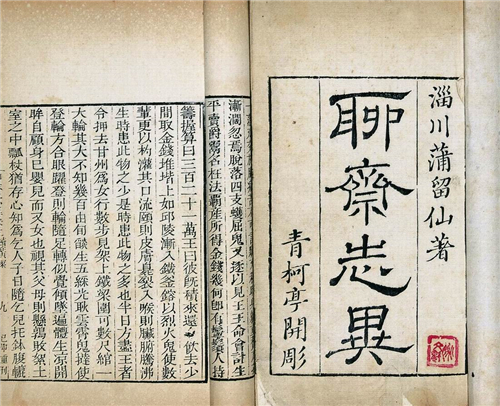 淄川蒲留仙著
聊齋志異
青柯亭開彫
忽焉脫落四支蠖屈鬼又逐以見王王命會計生
平賣爵鬻名枉法霸產所得金錢幾何即有鬚人持
籌握算曰三百二十一萬王曰彼既積來還令飲去少
間取金錢堆堦上如邱陵漸入鐵釜鎔以烈火鬼使數
輩更以杓灌其口流頤則皮膚臭裂入喉則臟腑騰沸
生時患此物之少是時患此物之多也半日方盡王者
令押去甘州為女行數步見架上鐵梁圍可數尺綰一
火輪其大不知幾百由旬燄生五綵光耿雲霄鬼撻使
登輪方合眼躍登則輪隨足轉似覺傾墜遍體生涼開
眸自顧身已嬰兒而又女也視其父母則懸鶉敗絮土
室之中瓢杖猶存心知為乞人子日隨乞兒托鉢腹轆